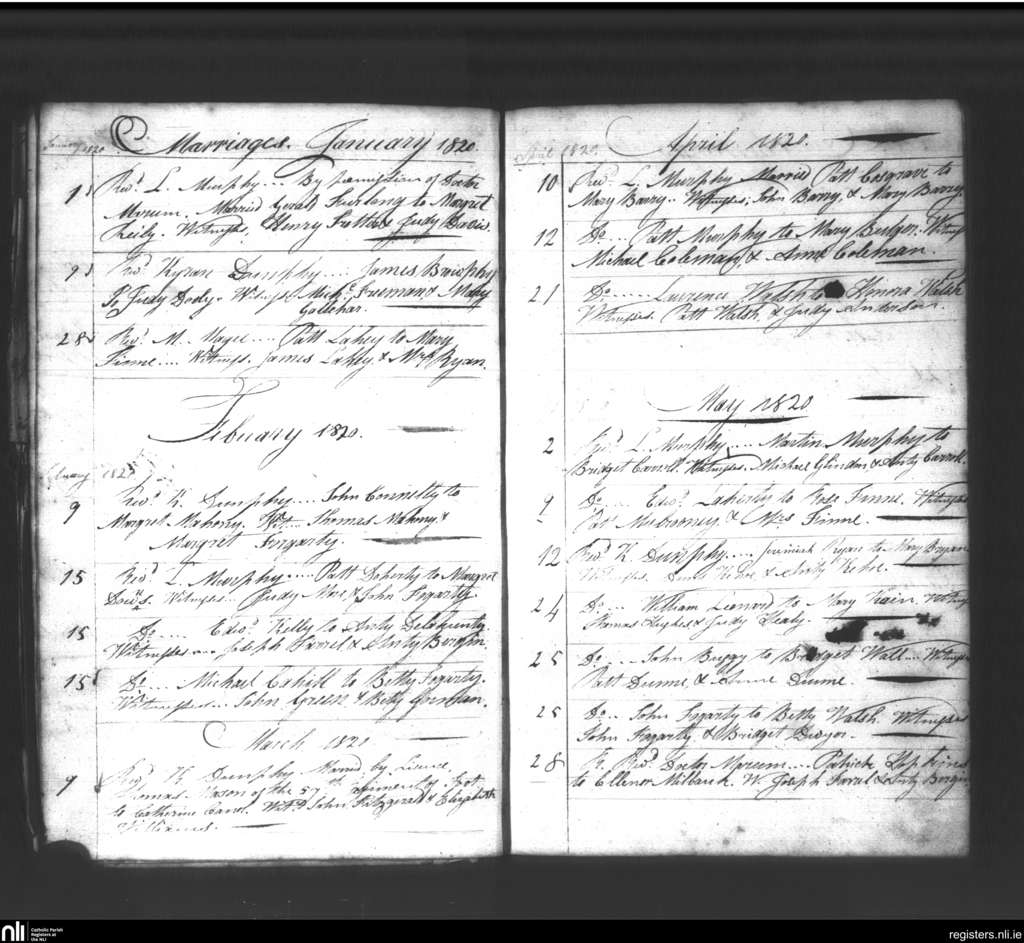 January 1820
Marriages. January 1820.
1 Revd. L. Murphy.... By permission of Doctor
Marum. Married Gerald Furlong to Margret
Reily. Witnesses, Henry & Judy Davis.
9 Revd. Kyran Dunphy.... James Brophy
To Judy Dooly. Witnesses Michl. Freeman & Mary
Gallehar.
28 Revd. M. Magee.... Patt Lahey to Mary
Finne.... Witnesses. James Lahey & Mrs. Ryan.
February 1820.
February 1820
9 Revd. K. Dunphy.... John Connelly to
Margret Mahony. Wit. Thomas Mahony &
Margret Fogarty.
15 Revd. L. Murphy.... Patt Doherty to Margret
Witnesses... Judy & John Fogarty.
15 Do.... Edwd. Kelly to Anty
Witnesses... Joseph Farrel & Anty Bergin.
15 Do.... Michael Cahill to Betty Fogarty.
Witnesses... John Green & Betty Gorman.
March 1820
9 Revd. K. Dunphy Married by Licence.
Thomas Mason of the 57th regiment of foot
to Catherine Witd. John Fitzgerald & Elizabeth
Williams.
April 1820
April 1820.
10 Revd. L. Murphy Married Patt Cosgrave to
Mary Barry.. Witnesses, John Barry, & Mary Barry.
12 Do... Patt Murphy to Mary Witnesses
Michael Coleman, & Anne Coleman.
21 Do...... Lawrence Walsh to Honora Walsh
Witnesses. Patt Welsh, & Judy Anderson.
May 1820
2 Revd. L. Murphy.... Martin Murphy to
Bridget Carroll. Witnesses. Michael Glindon & Anty Carroll.
9 Do... Edwd. Laherty to Rose Finne. Witnesses
Patt & Mrs Finne.
12 Revd. K. Dunphy.... Jeremiah Ryan to Mary Bryan
Witnesses. Kehoe & Anty Kehoe.
24 Do... William Leonard to Mary Kain. Witnesses
Thomas Hughes & Judy Healy.
25 Do.... John Buggy to Bridget Wall... Witnesses
Patt Dunne, & Anne Dunne.
25 Do... John Fogarty to Betty Walsh. Witnesses
John Fogarty & Bridget Dwyer.
28 Rt. Revd. Doctor Marum.... Patrick Hopkins
to Ellenor W. Joseph Farrel & Anty Bergin
nli
Catholic Parish
Registers at
the NLI
registers.nli.ie